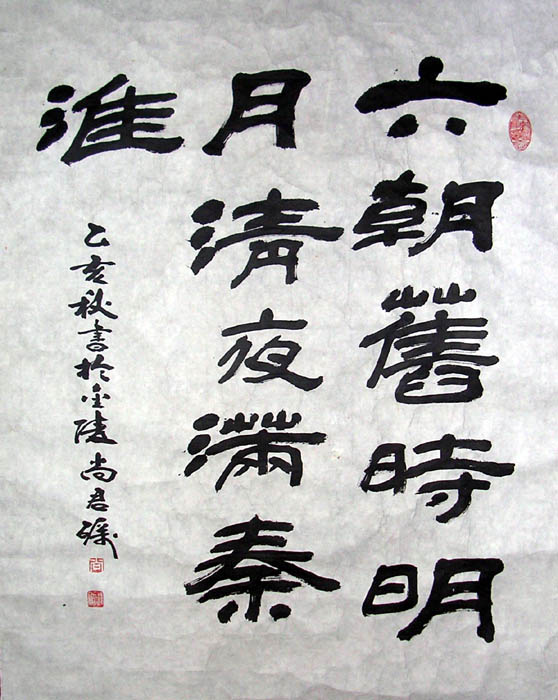 六朝舊時明
月清夜滿秦
淮
乙亥秋書於金陵尚君礪